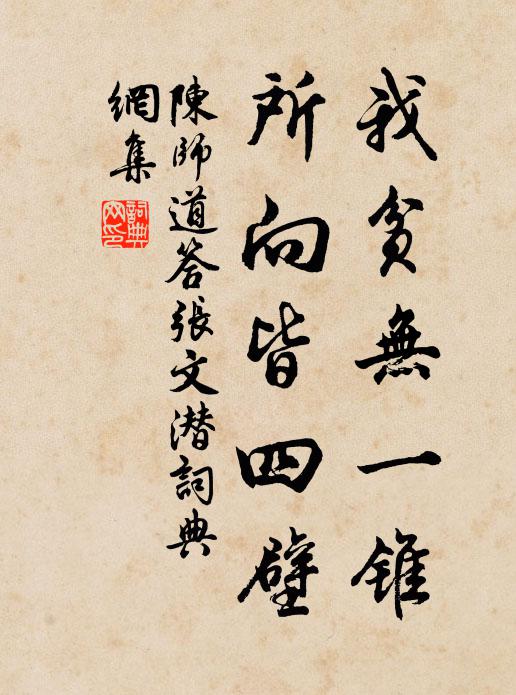 我貧無一錐
所向皆四壁
陳師道答張文潜詞典
網集
詞典
网印